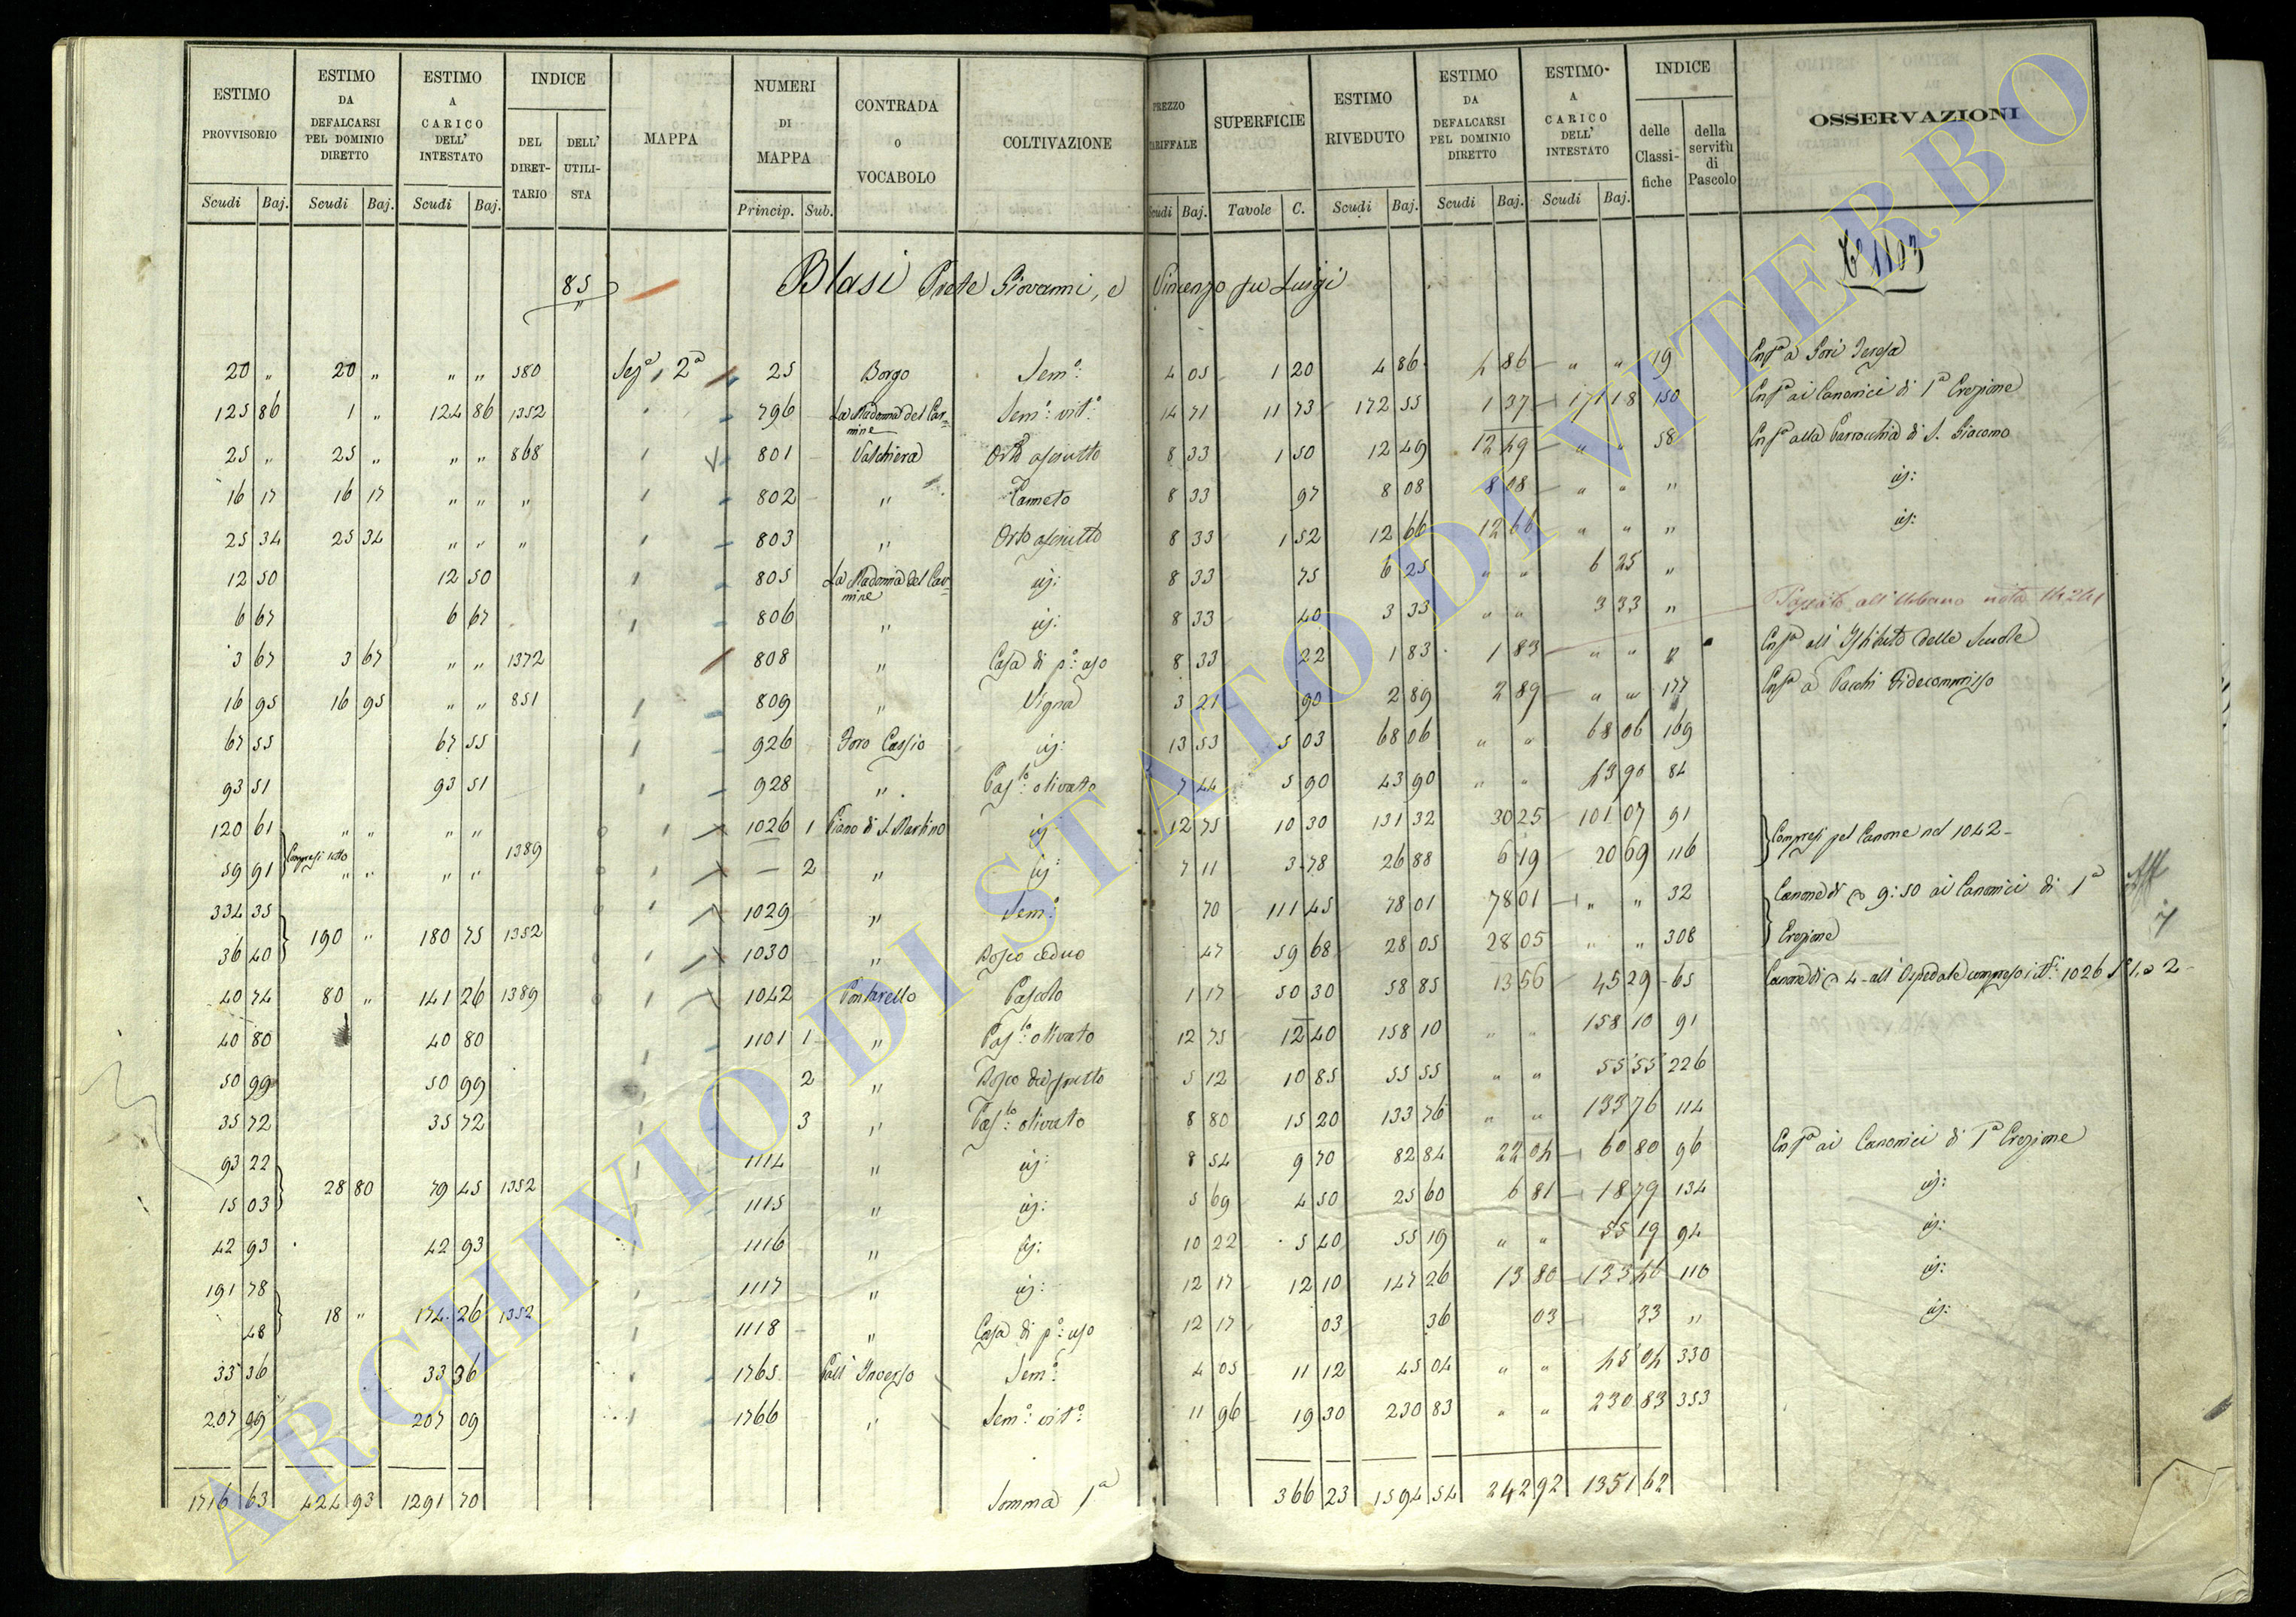 ESTIMO PROVVISORIO | ESTIMO DA DEFALCARSI PEL DOMINIO DIRETTO | ESTIMO A CARICO DELL' INTESTATO | INDICE | MAPPA | NUMERI DI MAPPA | CONTRADA O VOCABOLO | COLTIVAZIONE | PREZZO TARIFFALE | SUPERFICIE | ESTIMO RIVEDUTO | ESTIMO DA DEFALCARSI PEL DOMINIO DIRETTO | ESTIMO A CARICO DELL' INTESTATO | INDICE | OSSERVAZIONI
DEL DIRET-TARIO | DELL' UTILI-STA | delle Classi-fiche | della servitù di Pascolo
Scudi | Baj. | Scudi | Baj. | Scudi | Baj. | Princip. | Sub. | Scudi | Baj. | Tavole | C. | Scudi | Baj. | Scudi | Baj. | Scudi | Baj.
1103
85 Blasi Prete Giovanni, e Vincenzo fu Luigi
20 " | 20 " | " " | 580 | Sez.e 2a | 25 | Borgo | Sem.o | 4 05 | 1 20 | 4 86 | 4 86 | " " | 19 | Enfa a Gori Teresa
125 86 | 1 " | 124 86 | 1352 | 796 | La Madonna del Carmine | Sem.o vit.o | 14 71 | 11 73 | 172 55 | 1 37 | 171 18 | 150 | Enfa ai Canonici di 1a Erezione
25 " | 25 " | " " | 868 | 801 | Valchiera | Orto asciutto | 8 33 | 1 50 | 12 49 | 12 49 | " " | 58 | Enfa alla Parrocchia di S. Giacomo
16 17 | 16 17 | " " | " | 802 | " | Canneto | 8 33 | 97 | 8 08 | 8 08 | " " | " | id:
25 34 | 25 34 | " " | " | 803 | " | Orto asciutto | 8 33 | 1 52 | 12 66 | 12 66 | " " | " | id:
12 50 | 12 50 | 805 | La Madonna del Carmine | id: | 8 33 | 75 | 6 25 | " " | 6 25 | "
6 67 | 6 67 | 806 | " | id: | 8 33 | 40 | 3 33 | " " | 3 33 | " | all'Urbano nota
3 67 | 3 67 | " " | 1372 | 808 | " | Casa di p.o uso | 8 33 | 22 | 1 83 | 1 83 | " " | " | Enfa all'Istituto delle Scuole
16 95 | 16 95 | " " | 851 | 809 | " | Vigna | 3 21 | 90 | 2 89 | 2 89 | " " | 177 | Enfa a Pacchi Fidecommisso
67 55 | 67 55 | 926 | Foro Cassio | id: | 13 53 | 5 03 | 68 06 | " " | 68 06 | 169
93 51 | 93 51 | 928 | " | Pas.to olivato | 7 44 | 5 90 | 43 90 | " " | 43 90 | 84
120 61 | " " | " " | 1026 | 1 | Piano di S. Martino | id: | 12 75 | 10 30 | 131 32 | 30 25 | 101 07 | 91 | Compresi pel Canone nel 1042
59 91 | Compresi sotto " " | " " | 1389 | 2 | " | id: | 7 11 | 3 78 | 26 88 | 6 19 | 20 69 | 116
334 35 | 1029 | " | Sem.o | 70 | 111 45 | 78 01 | 78 01 | " " | 32 | Canone di 9:50 ai Canonici di 1a
36 40 | 190 " | 180 75 | 1352 | 1030 | " | Bosco ceduo | 47 | 59 68 | 28 05 | 28 05 | " " | 308 | Erezione
40 74 | 80 " | 141 26 | 1389 | 1042 | Pontarello | Pascolo | 1 17 | 50 30 | 58 85 | 13 56 | 45 29 | 65 | Canone di 4 all'Ospedale compreso i 1026 1, e 2
40 80 | 40 80 | 1101 | 1 | " | Pas.to olivato | 12 75 | 12 40 | 158 10 | " " | 158 10 | 91
50 99 | 50 99 | 2 | " | Bosco | 5 12 | 10 85 | 55 55 | " " | 55 55 | 226
35 72 | 35 72 | 3 | " | Pas.to olivato | 8 80 | 15 20 | 133 76 | " " | 133 76 | 114
93 22 | 1114 | " | id: | 8 54 | 9 70 | 82 84 | 22 04 | 60 80 | 96 | Enfa ai Canonici di 1a Erezione
15 03 | 28 80 | 79 45 | 1352 | 1115 | " | id: | 5 69 | 4 50 | 25 60 | 6 81 | 18 79 | 134 | id:
42 93 | 42 93 | 1116 | " | id: | 10 22 | 5 40 | 55 19 | " " | 55 19 | 94 | id:
191 78 | 1117 | " | id: | 12 17 | 12 10 | 147 26 | 13 80 | 133 46 | 110 | id:
48 | 18 " | 174 26 | 1352 | 1118 | " | Casa di p.o uso | 12 17 | 03 | 36 | 03 | 33 | " | id:
33 36 | 33 36 | 1765 | Inverso | Sem.o | 4 05 | 11 12 | 45 04 | " " | 45 04 | 330
207 09 | 207 09 | 1766 | " | Sem.o vit.o | 11 96 | 19 30 | 230 83 | " " | 230 83 | 353
1716 63 | 424 93 | 1291 70 | Somma 1a | 366 23 | 1594 54 | 242 92 | 1351 62
ARCHIVIO DI STATO DI VITERBO